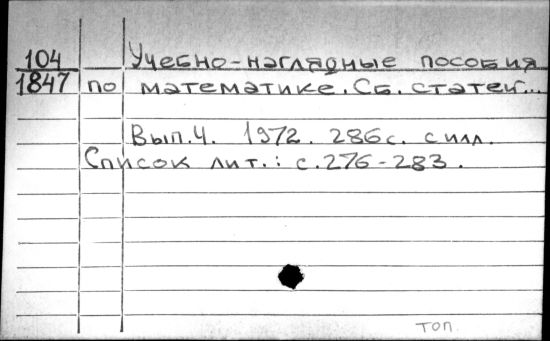 104 Учебно-наглядные пособия
1847 по математике. Сб. статей...
Вып.4. 1972. 286с. с илл.
Список лит.: с.276-283.
топ